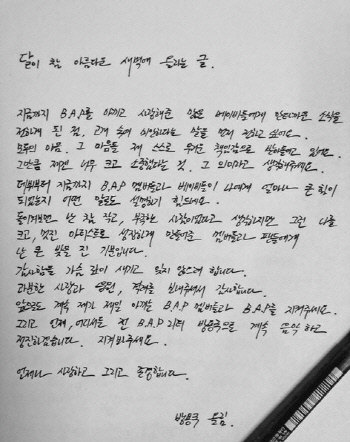 달이 참 아름다운 새벽에 올리는 글.
지금까지 B.A.P를 아끼고 사랑해준 많은 베이비들에게 안타까운 소식을
전하게 된 점, 고개 숙여 미안하다는 말을 먼저 전하고 싶어요.
모두의 아픔. 그 마음들 제 스스로 무거운 책임감으로 받아들이고 있어요.
그만큼 제겐 너무 크고 소중했다는 것. 그 의미라고 생각해주세요.
데뷔부터 지금까지 B.A.P 멤버들과 베이비들이 나에게 얼마나 큰 힘이
되었는지 어떤 말로도 설명하기 힘드네요.
돌이켜보면 난 참 작고, 부족한 사람이었다고 생각하지만 그런 나를
크고, 멋진 아티스트로 성장하게 만들어준 멤버들과 팬들에게
난 큰 빚을 진 기분입니다.
감사함을 가슴 깊이 새기고 잊지 않으려 합니다.
과분한 사랑과 응원, 격려를 보내주셔서 감사합니다.
앞으로도 계속 제가 제일 아끼는 B.A.P 멤버들과 B.A.P를 지켜주세요.
그리고 언제, 어디서든 전 B.A.P 리더 방용국으로 계속 음악 하고
정진하겠습니다. 지켜봐주세요.
언제나 사랑하고 그리고 존경합니다.
방용국 올림.